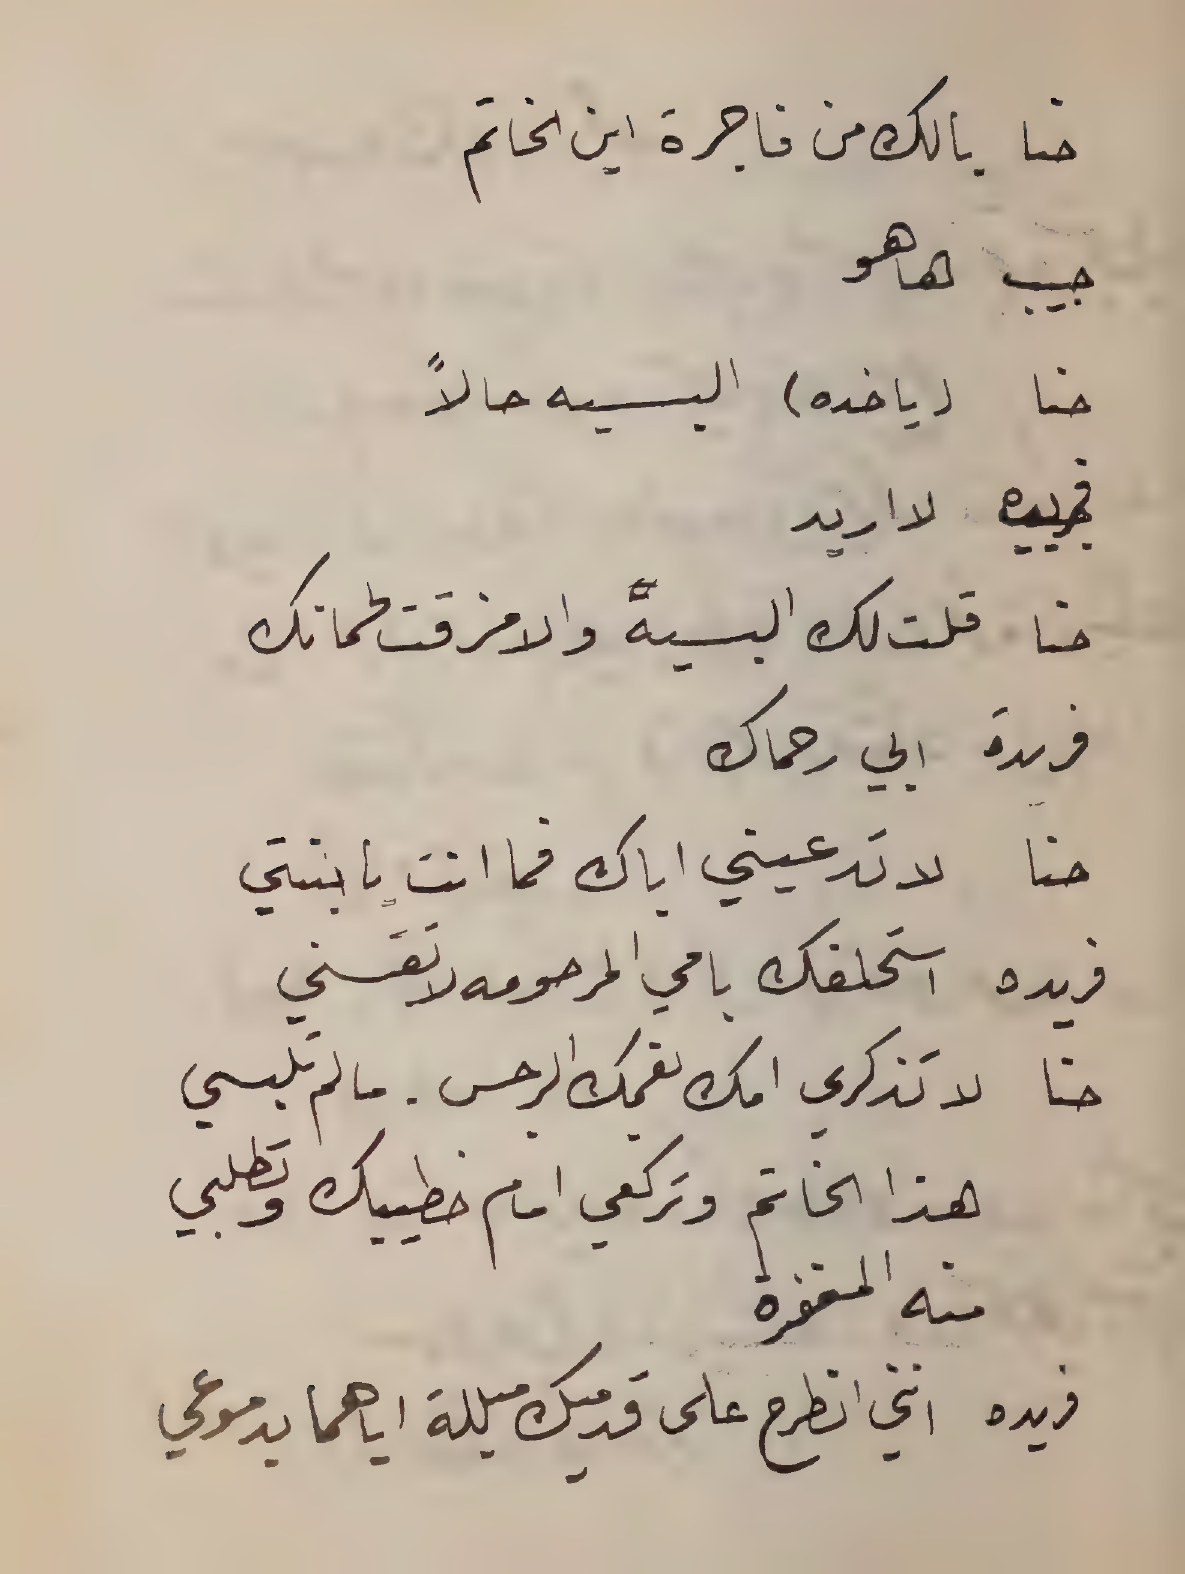 حنا يالك من فاجرة اين الخاتم
جيب هاهو
حنا (ياخذه) البسيه حالاً
فريده لا اريد
حنا قلت لك البسيه والا مزقت لحمانك
فريدة ابي رحماك
حنا لا تدعيني اباك فما انت يا بنتي
فريده استحلفك بامي المرحومه لا تقسني
حنا لا تذكري امك بفمك الرجس . مالم تلبسي
هذا الخاتم وتركعي امام خطيبك وتطلبي
منه المغفرة
فريده انني انطرح على قدميك مبللة اياهما بدموعي